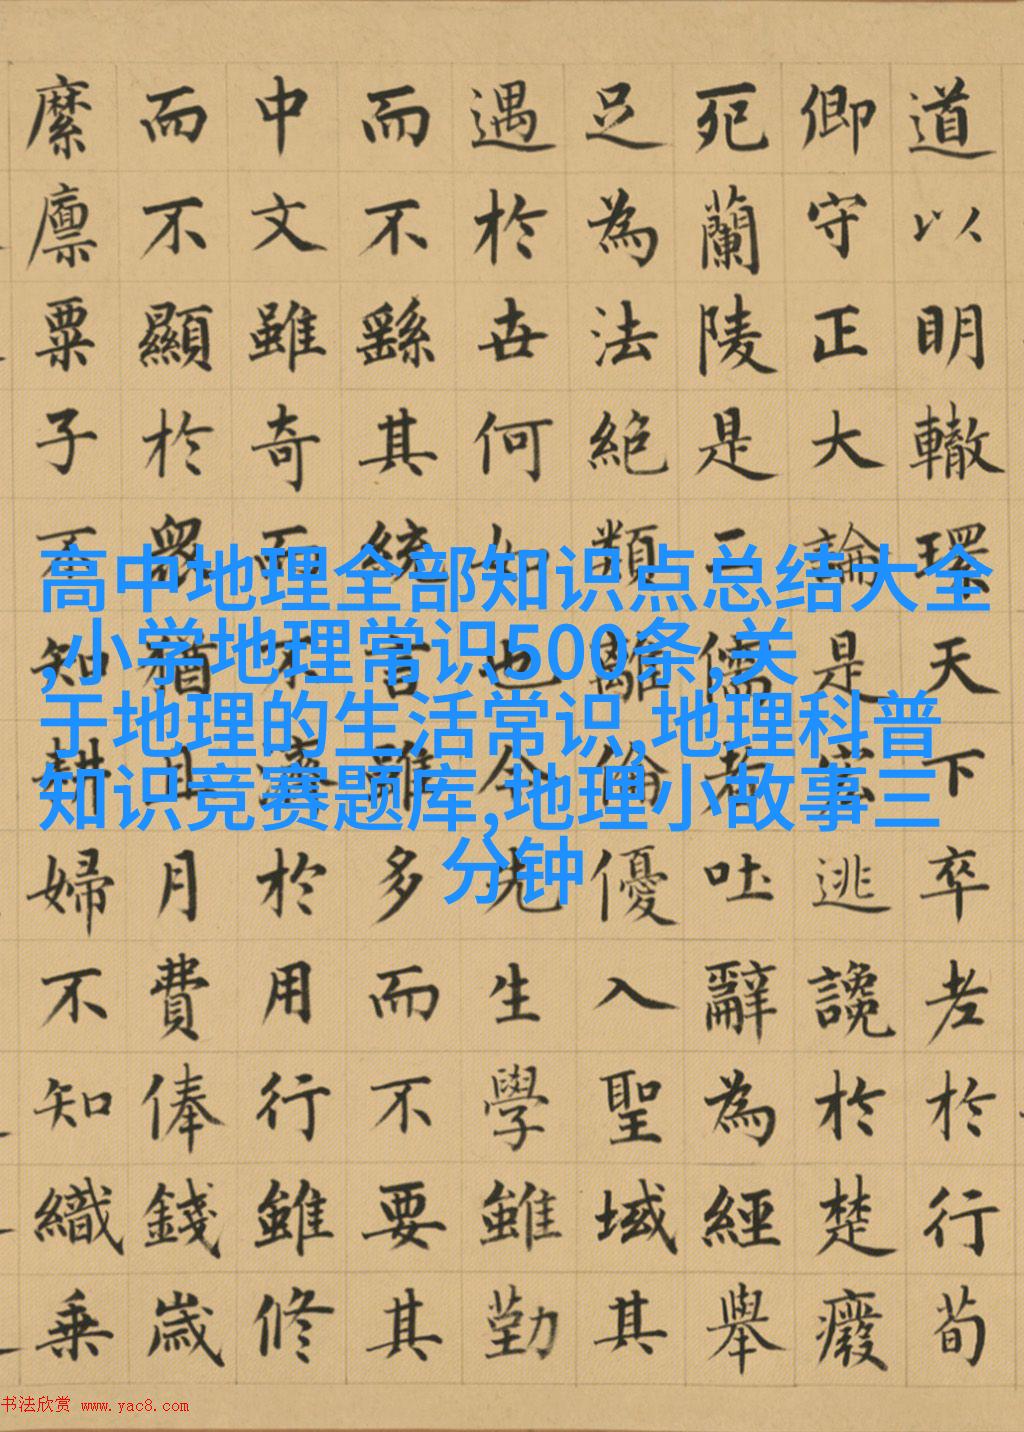 道以明轍環天下卒老於行荀
卿守正大論是宏逃讒於楚癈
死蘭陵是二儒者吐辭為經舉
足為法絕類離倫優入聖域其
遇於世何如也今先生學雖勤
而不繇其統言雖多而不要其
中文雖奇而不濟於用行雖修
而不顯於眾猶且月費俸錢歲
縻廩粟子不知耕婦不知織乗
高中地理全部知识点总结大全
,小学地理常识500条,关
于地理的生活常识,地理科普
知识竞赛题库,地理小故事三
分钟
书法欣赏 www.yac8.com